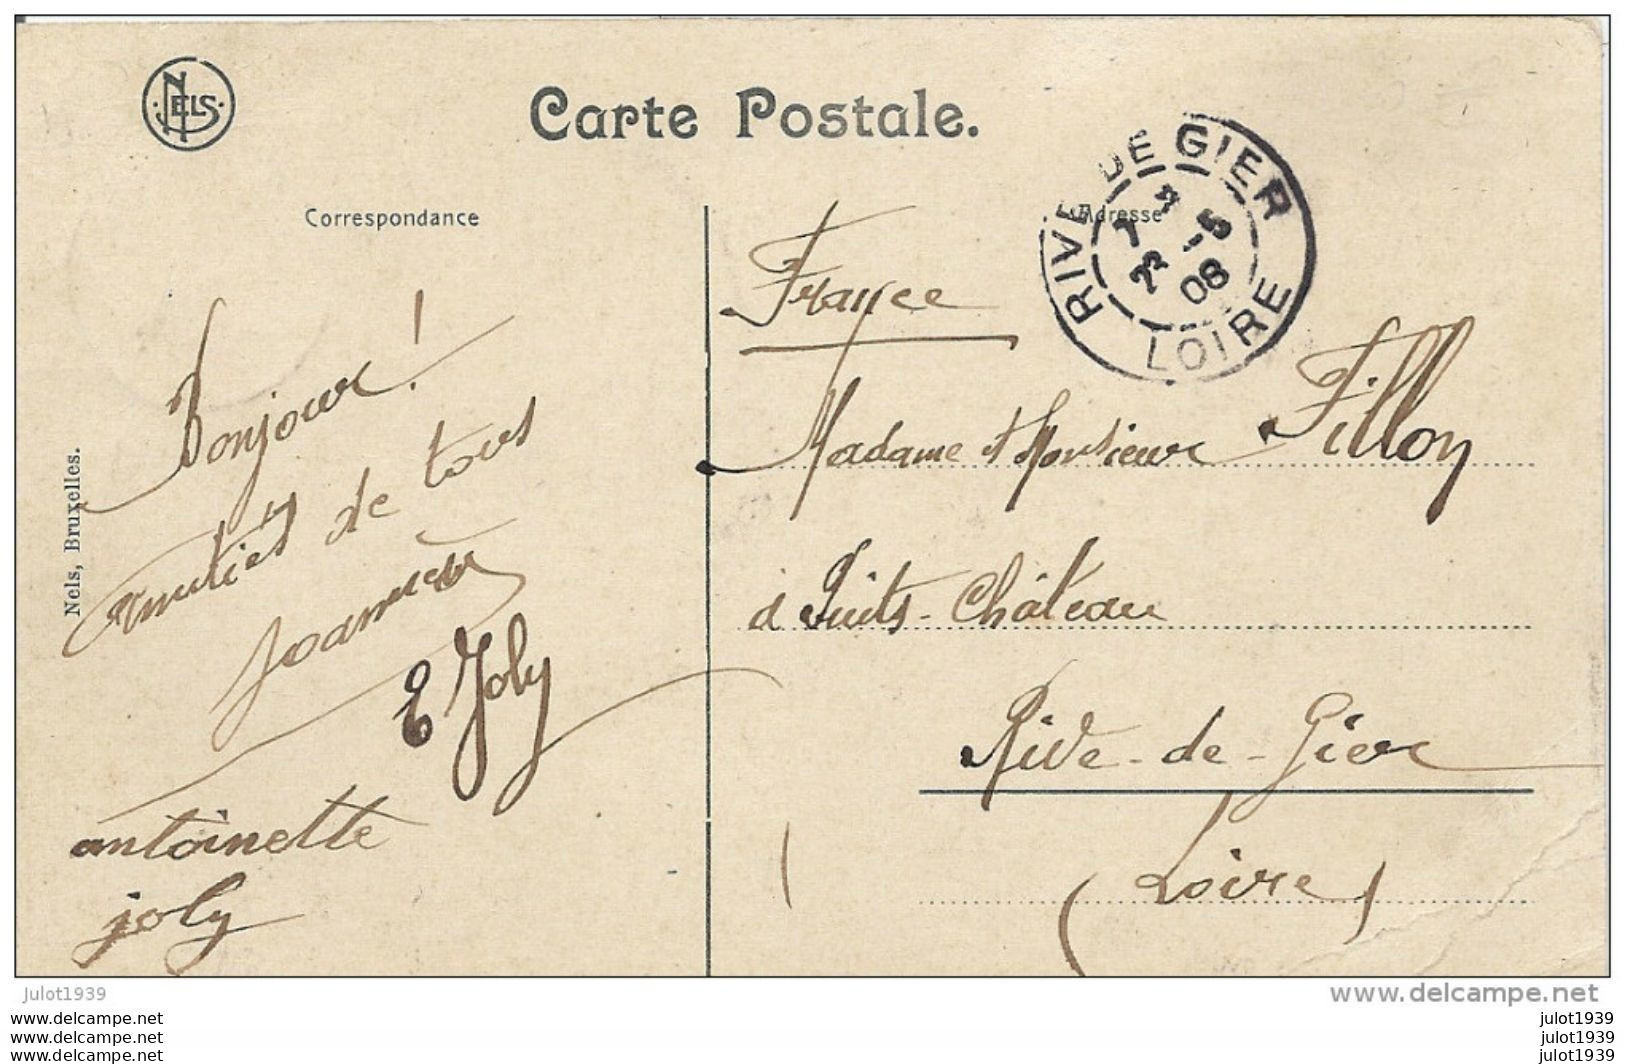 NELS
Carte Postale.
Correspondance
Adresse
RIVE DE GIER
7
23 -5
08
LOIRE
France
Bonjour!
amitiés de tous
Joannès
E Joly
antoinette
joly
Madame et Monsieur Fillon
à Puits-Château
Rive-de-Gier
(Loire)
Nels, Bruxelles.
julot1939
www.delcampe.net
www.delcampe.net
www.delcampe.net
www.delcampe.net
julot1939
julot1939
julot1939